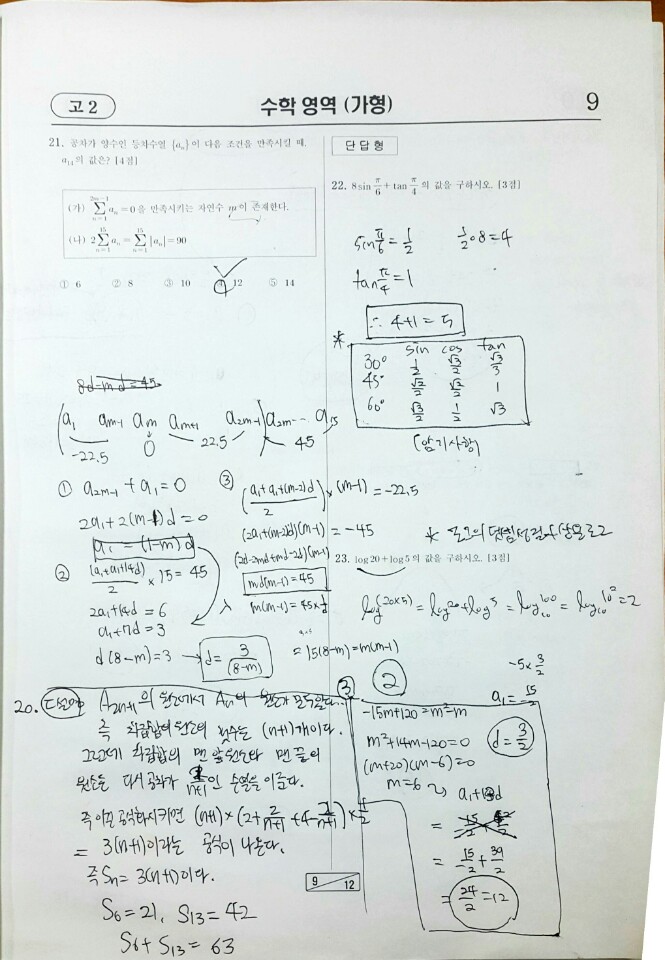 고 2
수학 영역 (가형)
9
21. 공차가 양수인 등차수열 {aₙ}이 다음 조건을 만족시킬 때,
a₁₄의 값은? [4점]
(가) ∑_{n=1}^{2m-1} aₙ = 0을 만족시키는 자연수 m이 존재한다.
(나) 2∑_{n=1}^{15} aₙ = ∑_{n=1}^{15} |aₙ| = 90
① 6 ② 8 ③ 10 ④ 12 ⑤ 14
8d-md=45
a₁ a_{m-1} a_m a_{m+1} a_{2m-1} a_{2m} ... a₁₅
-22.5 0 22.5 45
① a_{2m-1} + a₁ = 0
2a₁+2(m-1)d = 0
a₁ = (1-m)d
② (a₁+a₁+14d)/2 × 15 = 45
2a₁+14d = 6
a₁+7d = 3
d(8-m)=3 → d = 3/(8-m)
③ (a₁+a₁+(m-2)d)/2 × (m-1) = -22.5
(2a₁+(m-2)d)(m-1) = -45
(2d-2md+md-2d)(m-1)
md(m-1) = 45
m(m-1) = 45 × 1/d
= 15(8-m) = m(m-1)
단 답 형
22. 8sin π/6 + tan π/4 의 값을 구하시오. [3점]
sin π/6 = 1/2 1/2 · 8 = 4
tan π/4 = 1
∴ 4+1 = 5
*
sin cos tan
30° 1/2 √3/2 √3/3
45° √2/2 √2/2 1
60° √3/2 1/2 √3
(암기사항)
* 로그의 덧셈성질
23. log 20 + log 5 의 값을 구하시오. [3점]
log(20×5) = log 20 + log 5 = log₁₀ 100 = log₁₀ 10² = 2
③ ②
-5 × 3/2
a₁ = -15/2
-15m+120 = m²-m
m²+14m-120 = 0
d = 3/2
(m+20)(m-6) = 0
m = 6
a₁+13d
= 15/2 + 39/2
= 24/2 = 12
20. A_{2n+1}의 원소에서 Aₙ의 원소가
즉 차집합의 원소의 갯수는 (n+1)개이다.
그런데 차집합의 맨 앞 원소와 맨 끝의
원소는 다시 공차가 2/(n+1)인 수열을 이룬다.
즉 이를 공식화시키면 (n+1)×(2+2/(n+1)+4-2/(n+1))×1/2
= 3(n+1)이라는 공식이 나온다.
즉 Sₙ = 3(n+1)이다.
S₆ = 21, S₁₃ = 42
S₆ + S₁₃ = 63
9 12